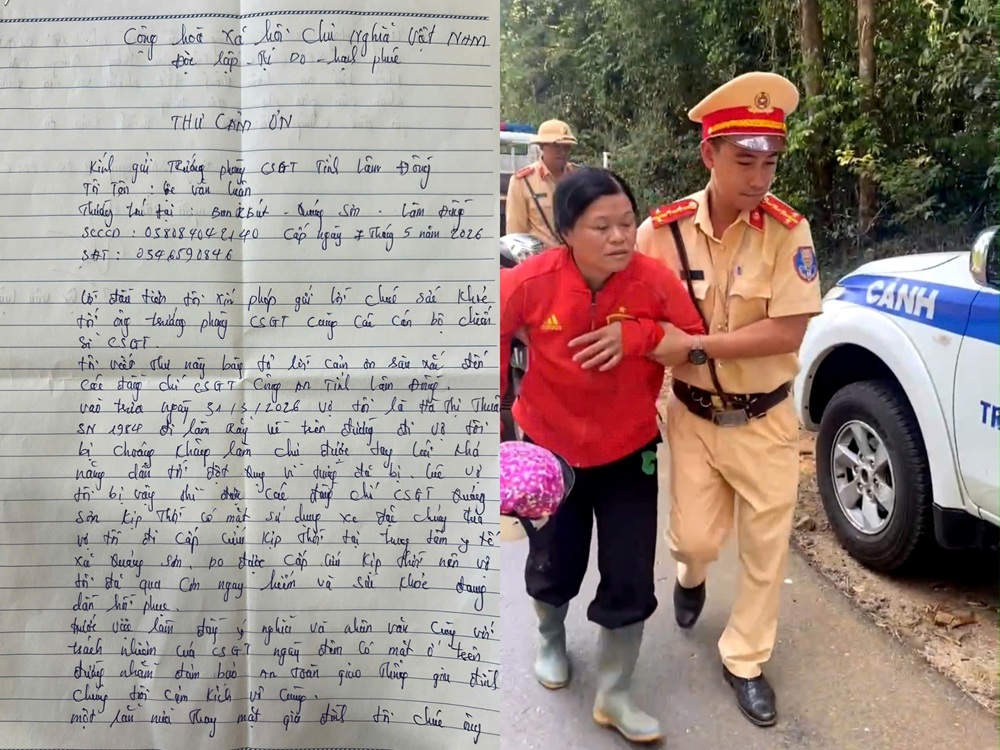 Cộng hoà xã hội chủ nghĩa Việt NAM
Độc lập - Tự Do - hạnh phúc
THƯ CẢM ƠN
Kính gửi Trưởng phòng CSGT Tỉnh Lâm Đồng
Tôi Tên : văn
Thường trú tại : Bon Bút - Quảng Sơn - Lâm Đồng
SCCCD : 05808404 2140 Cấp ngày 7 Tháng 5 năm 2026
SĐT : 0346590846
Lời đầu tiên tôi xin phép gửi lời chúc sức khỏe
tới ông trưởng phòng CSGT cùng các cán bộ chiến
sĩ CSGT.
tôi viết Thư này bày tỏ lời cảm ơn sâu sắc đến
các đồng chí CSGT Công An Tỉnh Lâm Đồng.
vào trưa ngày 31/3/2026 vợ tôi là Hà Thị
SN 1984 đi làm rẫy về trên đường đi vợ tôi
bị choáng không làm chủ được tay lái khả
năng dẫn tới đột quỵ vì trước đó bị. Lúc vợ
tôi bị vậy thì được các đồng chí CSGT Quảng
Sơn kịp Thời có mặt sử dụng xe đặc chủng đưa
vợ tôi đi cấp cứu kịp Thời tại trung tâm y tế
xã Quảng Sơn. Do được cấp cứu kịp thời nên vợ
tôi đã qua cơn nguy hiểm và sức khỏe đang
dần hồi phục.
trước việc làm đầy ý nghĩa và nhân văn cùng với
trách nhiệm của CSGT ngày đêm có mặt ở trên
đường nhằm đảm bảo An Toàn giao Thông gia đình
chúng tôi cảm kích vô cùng.
một lần nữa Thay mặt gia đình tôi chúc ông
adidas
CẢNH
TR